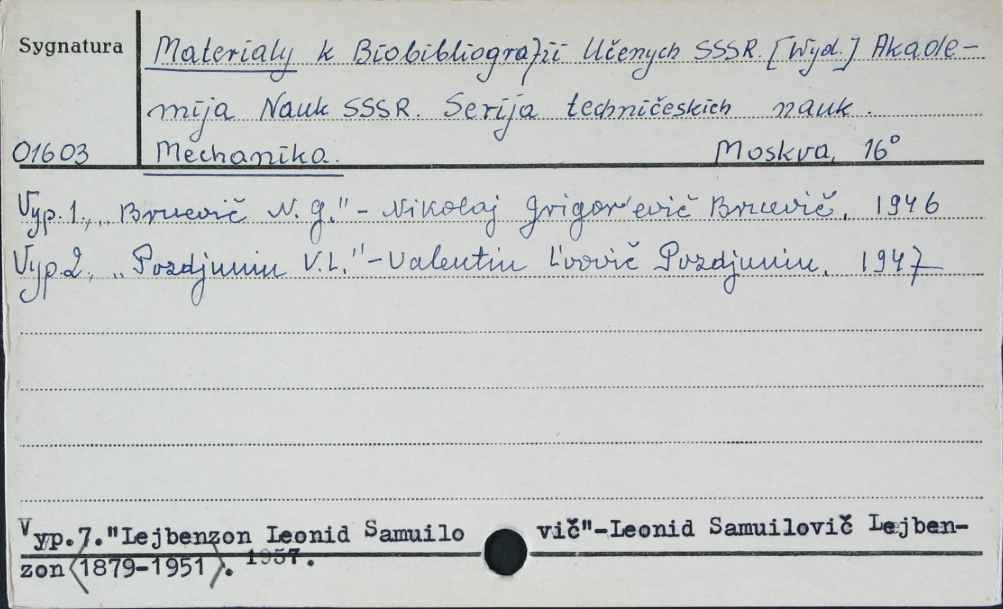 Sygnatura
Materialy k Biobibliografii Učenych SSSR. [Wyd.] Akade-
mija Nauk SSSR. Serija techničeskich nauk.
01603 Mechanika. Moskva, 16°
Vyp. 1., „Bruevič N. G." - Nikolaj Grigor'evič Bruevič. 1946
Vyp. 2, „Pozdjunin V. L." - Valentin L'vovič Pozdjunin. 1947
Vyp.7."Lejbenzon Leonid Samuilo vič"-Leonid Samuilovič Lejben-
zon <1879-1951>. 1957.